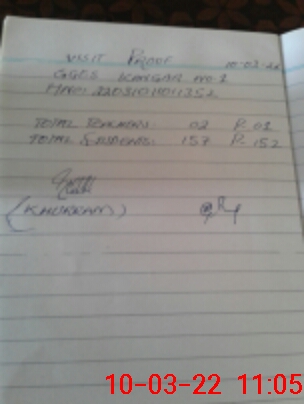 VISIT PROOF 10-03-22
GGCS KANGAR NO-2
TOTAL TEACHERS: 02 P. 02
TOTAL STUDENTS: 157 P. 152
(KHURRAM)
10-03-22 11:05